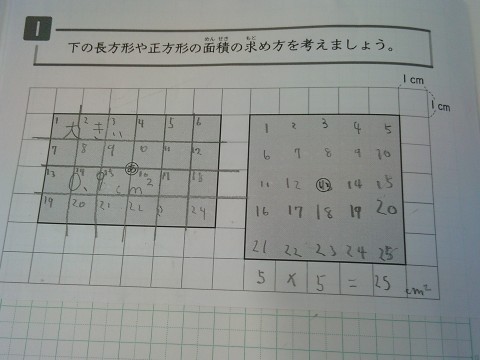 1
下の長方形や正方形の面積の求め方を考えましょう。
めん せき
もと
1 cm
1 cm
1 2 3 4 5 6
大きい
7 8 9 10 11 12
cm²
19 20 21 22 24
1 2 3 4 5
6 7 8 9 10
11 12 14 15
16 17 18 19 20
21 22 23 24 25
5 × 5 = 25 cm²